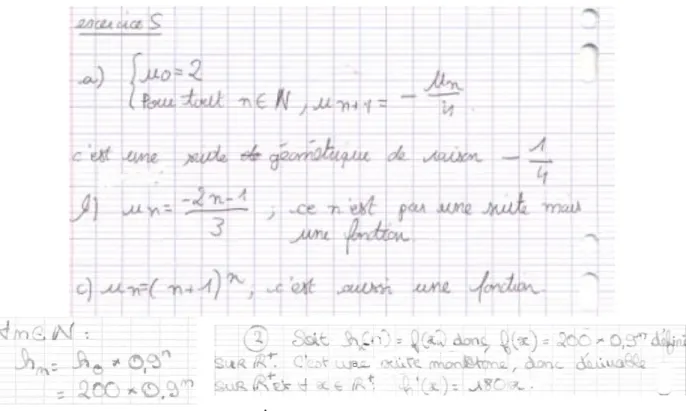 exercice 5
a) { u0 = 2
Pour tout n ∈ N, un+1 = - un/4
c'est une suite géométrique de raison - 1/4
b) un = -2n-1/3 ; ce n'est pas une suite mais
une fonction
c) un=(n+1)^n, c'est aussi une fonction
∀n∈N :
hn = h0 × 0,9^n
= 200 × 0,9^n
② Soit h(n) = f(x) donc f(x) = 200 × 0,9^n défini
sur R+. C'est une suite monotone, donc dérivable
sur R+ et ∀ x ∈ R+ f'(x) = 180x.